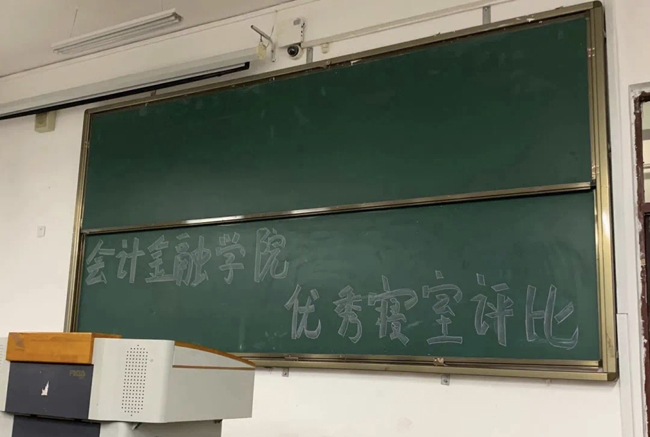 会计金融学院
优秀寝室评比